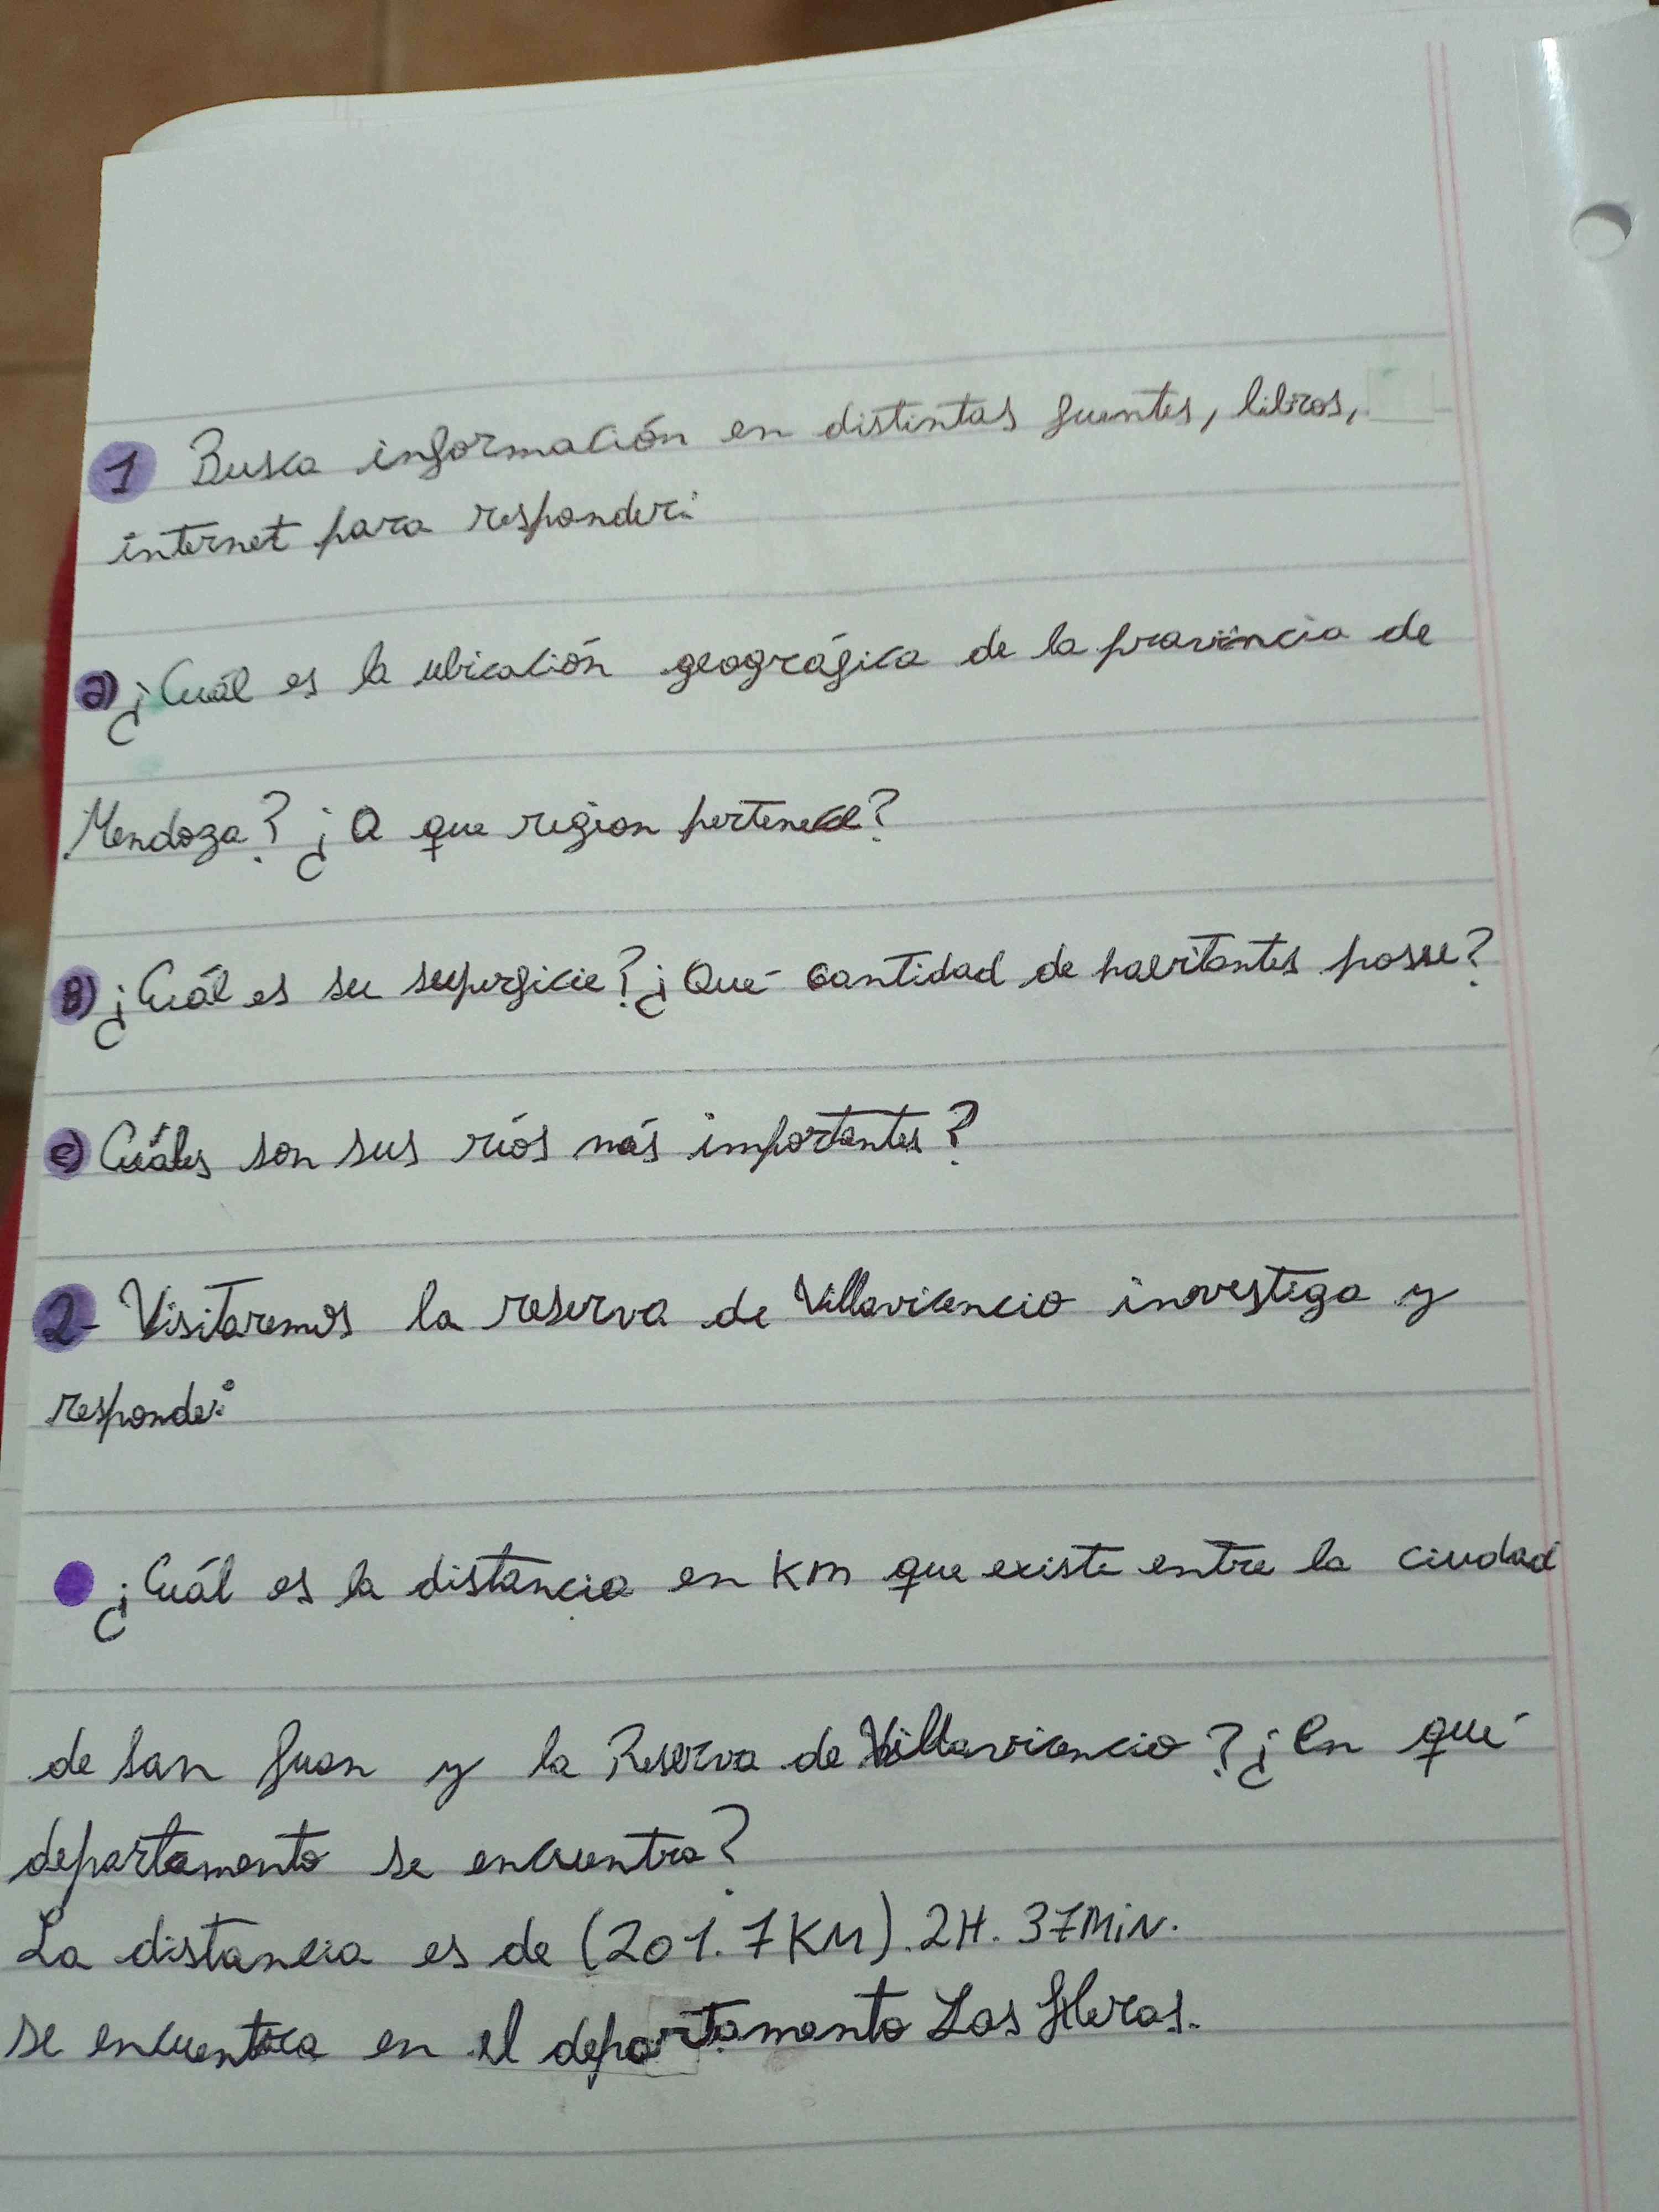 1 Busca información en distintas fuentes, libros,
internet para responder:
a) ¿Cuál es la ubicación geográfica de la provincia de
Mendoza? ¿A que region pertenece?
B) ¿Cuál es su superficie? ¿Qué cantidad de habitantes posee?
c) Cuáles son sus ríos más importantes?
2- Visitaremos la reserva de Villavicencio investiga y
responde:
¿Cuál es la distancia en KM que existe entre la ciudad
de San Juan y la Reserva de Villavicencio? ¿En qué
departamento se encuentra?
La distancia es de (201.7KM). 2H. 37MiN.
se encuentra en el departamento Las Heras.